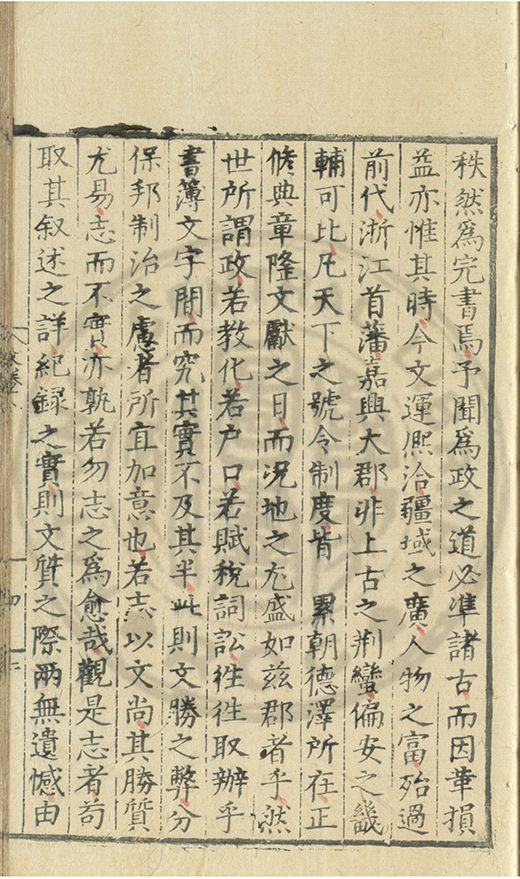 秩然爲完書焉予聞爲政之道必準諸古而因革損
益亦惟其時今文運熈洽疆域之廣人物之富殆過
前代浙江首藩嘉興大郡非上古之荆蠻偏安之畿
輔可比凡天下之號令制度皆　累朝德澤所在正
脩典章隆文獻之日而況地之尤盛如兹郡者乎然
世所謂政若教化若户口若賦稅詞訟徃徃取辦乎
書簿文字間而究其實不及其半此則文勝之弊分
保邦制治之慮者所宜加意也若志以文尚其勝質
尤易志而不實亦孰若勿志之爲愈哉觀是志者苟
取其叙述之詳紀録之實則文質之際兩無遺憾由